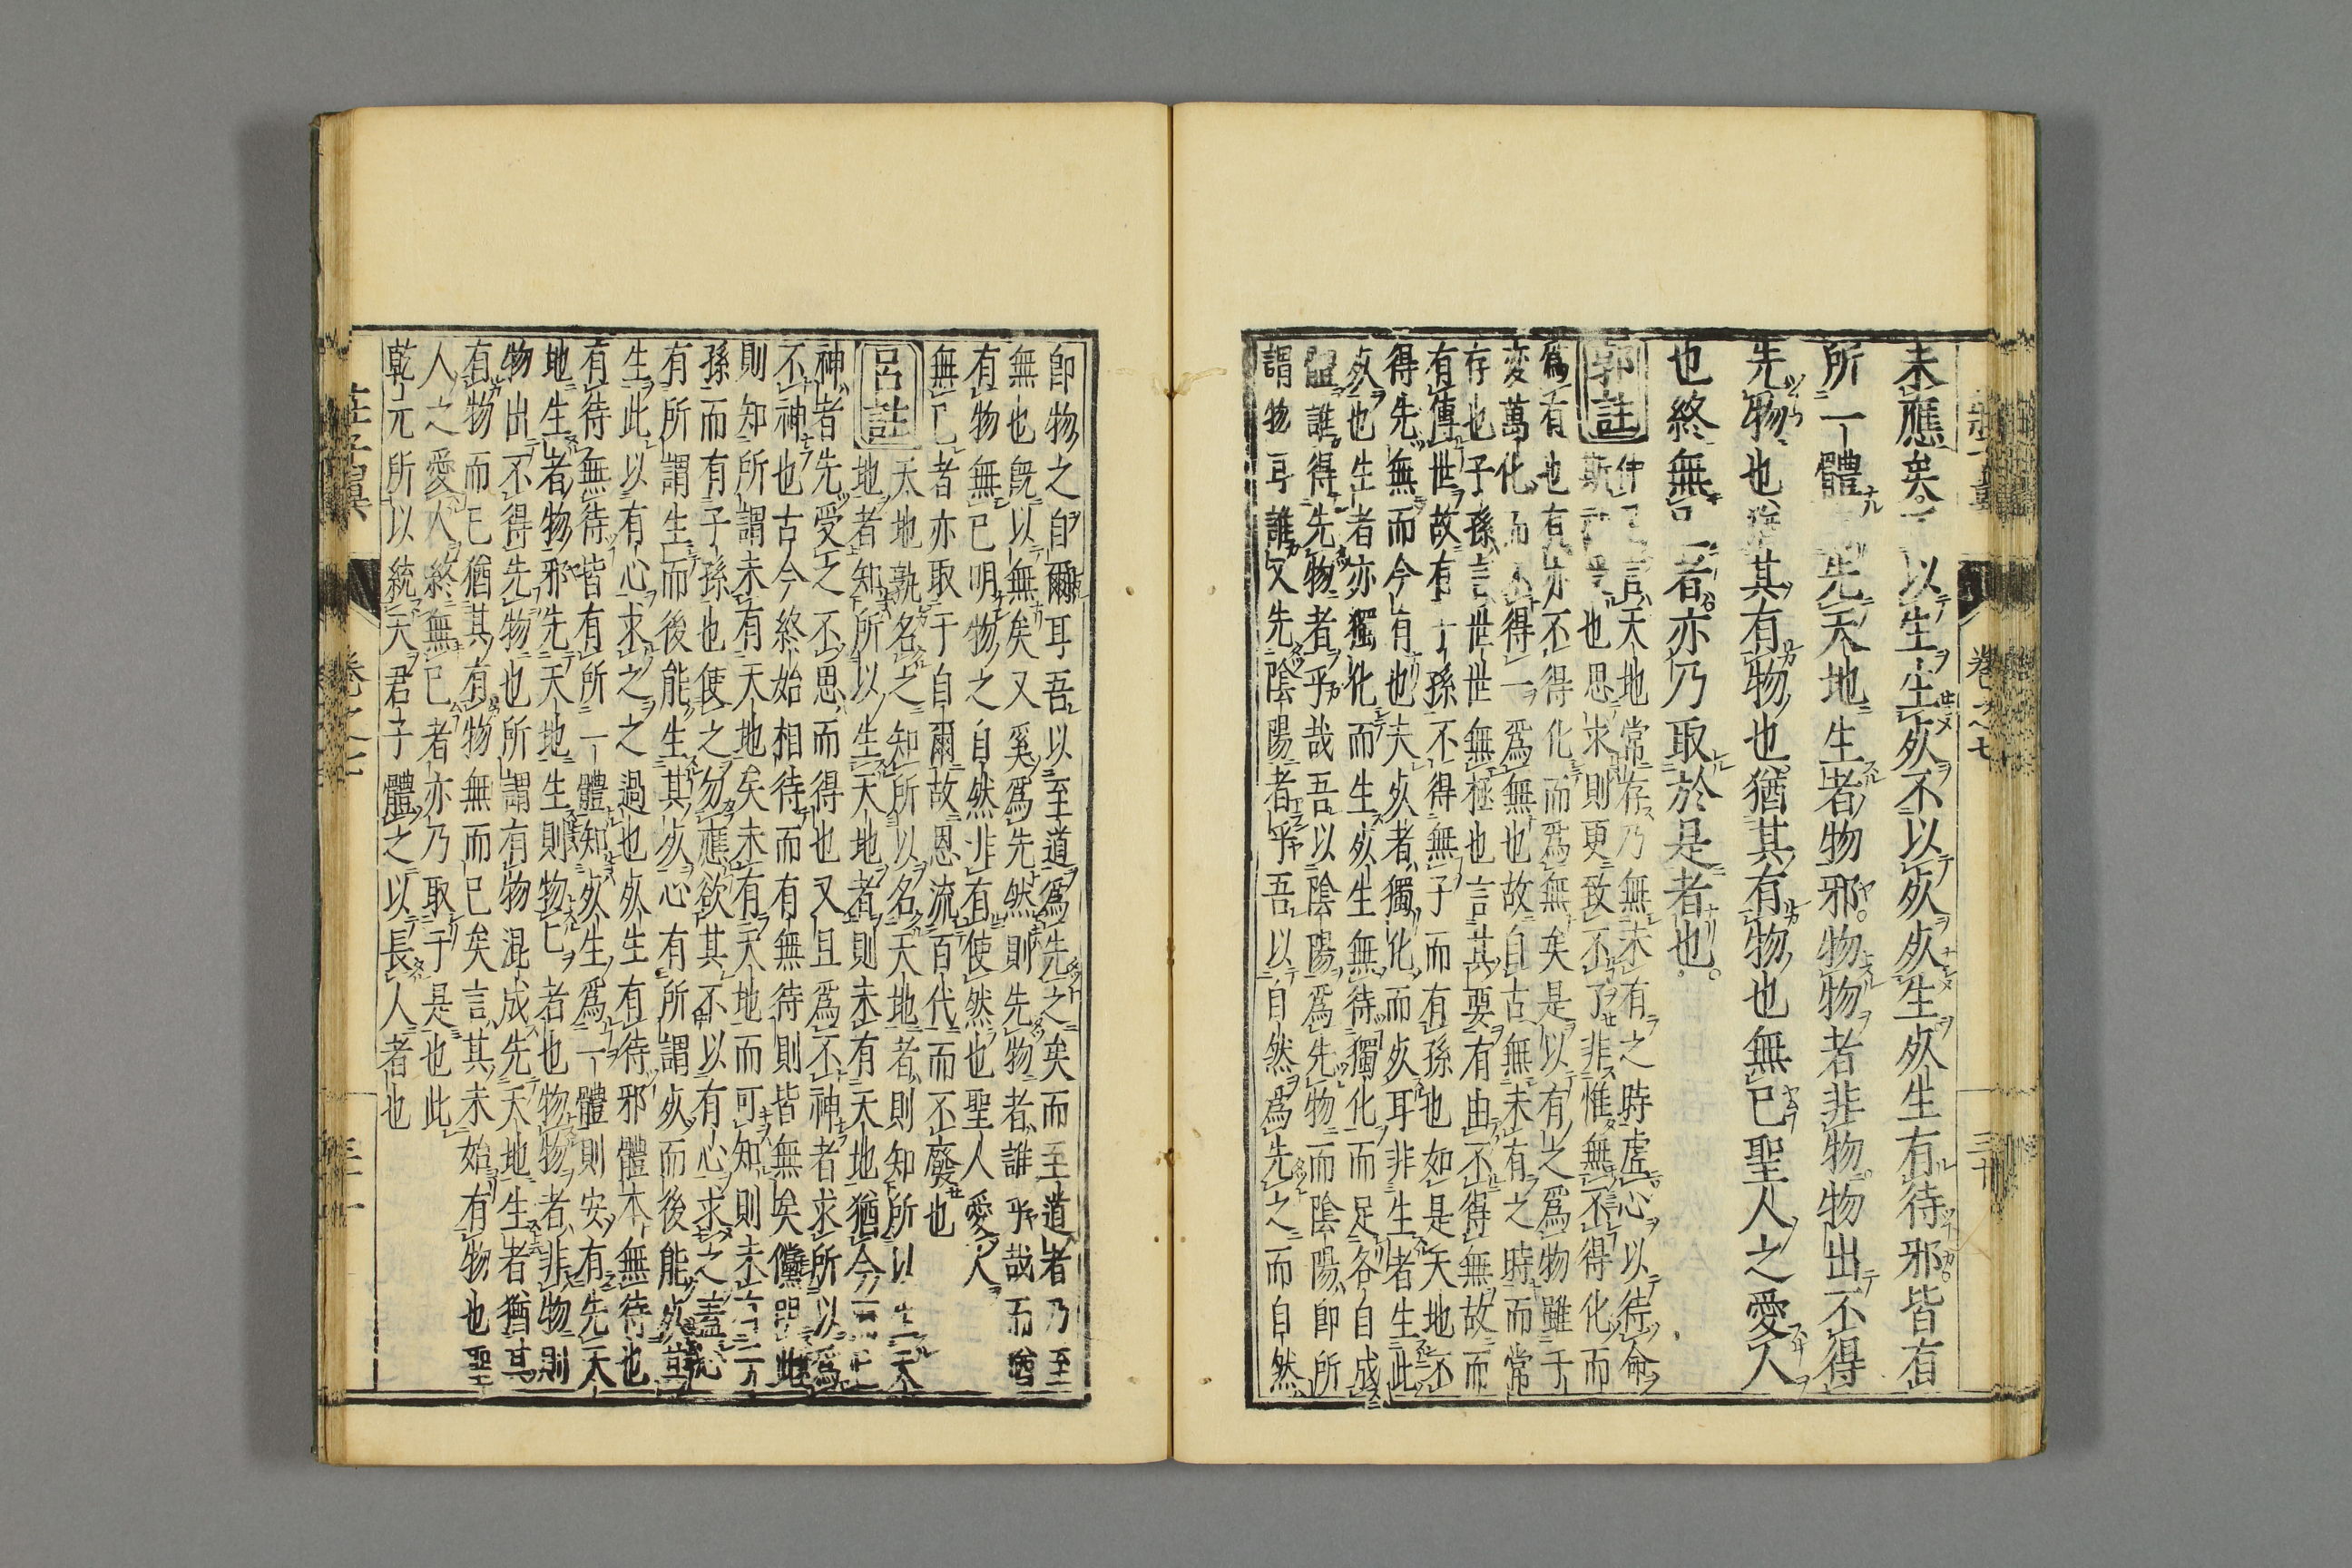 未應矣以生生死不以死死生死生有待邪皆有
所一體先天地生者物邪物物者非物物出不得
先物也猶其有物也猶其有物也無已聖人之愛人
也終無已者亦乃取於是者也
郭註
仲尼言天地常存乃無未有之時虚心以待命
斯神受也思求則更致不了非惟無不得化而
爲有也有亦不得化而爲無矣是以有之爲物雖千
変萬化而不得一爲無也故自古無未有之時而常
存也子孫言世世無極也言其要有由不得無故而
有傳世故有子孫不得無子而有孫也如是天地不
得先無而今有也夫死者獨化而死耳非生者生此
死也生者亦獨化而生死生無待獨化而足各自成
體誰得先物者乎哉吾以陰陽爲先物而陰陽即所
謂物耳誰又先陰陽者乎吾以自然爲先之而自然
即物之自爾耳吾以至道爲先之矣而至道者乃至
無也既以無矣又奚爲先然則先物者誰乎哉而猶
有物無已明物之自然非有使然也聖人愛人
無已者亦取于自爾故恩流百代而不廢也
呂註
天地孰名之知所以名天地者則知所以生天
地者知所以生天地者則未有天地猶今
神者先受之不思而得也又且爲不神者求所以爲
不神也古今終始相待而有無待則皆無矣儻
則知所謂未有天地矣未有天地而可知則未有
孫而有子孫也使之勿應欲其不以有心求之蓋心
有所謂生而後能生其死心有所謂死而後能死豈
生此以有心求之之過也死生有待邪體本無待也
有待無待皆有所一體知死生爲一體則安有先天
地生者物邪先天地生則物已者也物物者非物則
物出不得先物也所謂有物混成先天地生者猶其
有物而已猶其有物無而已矣言其未始有物也聖
人之愛人終無已者亦乃取于是也此
乾元所以統天君子體之以長人者也
莊子翼 卷之七